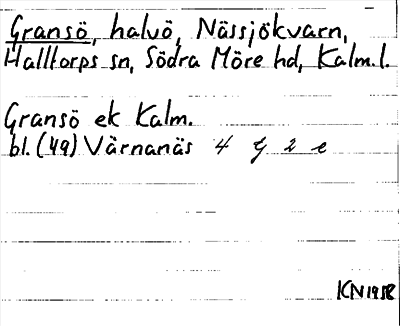 Gransö, halvö, Nässjökvarn,
Halltorps sn, Södra Möre hd, Kalm. l.
Gransö ek Kalm.
bl. (49) Värnanäs 4 G 2 e
KN 1958